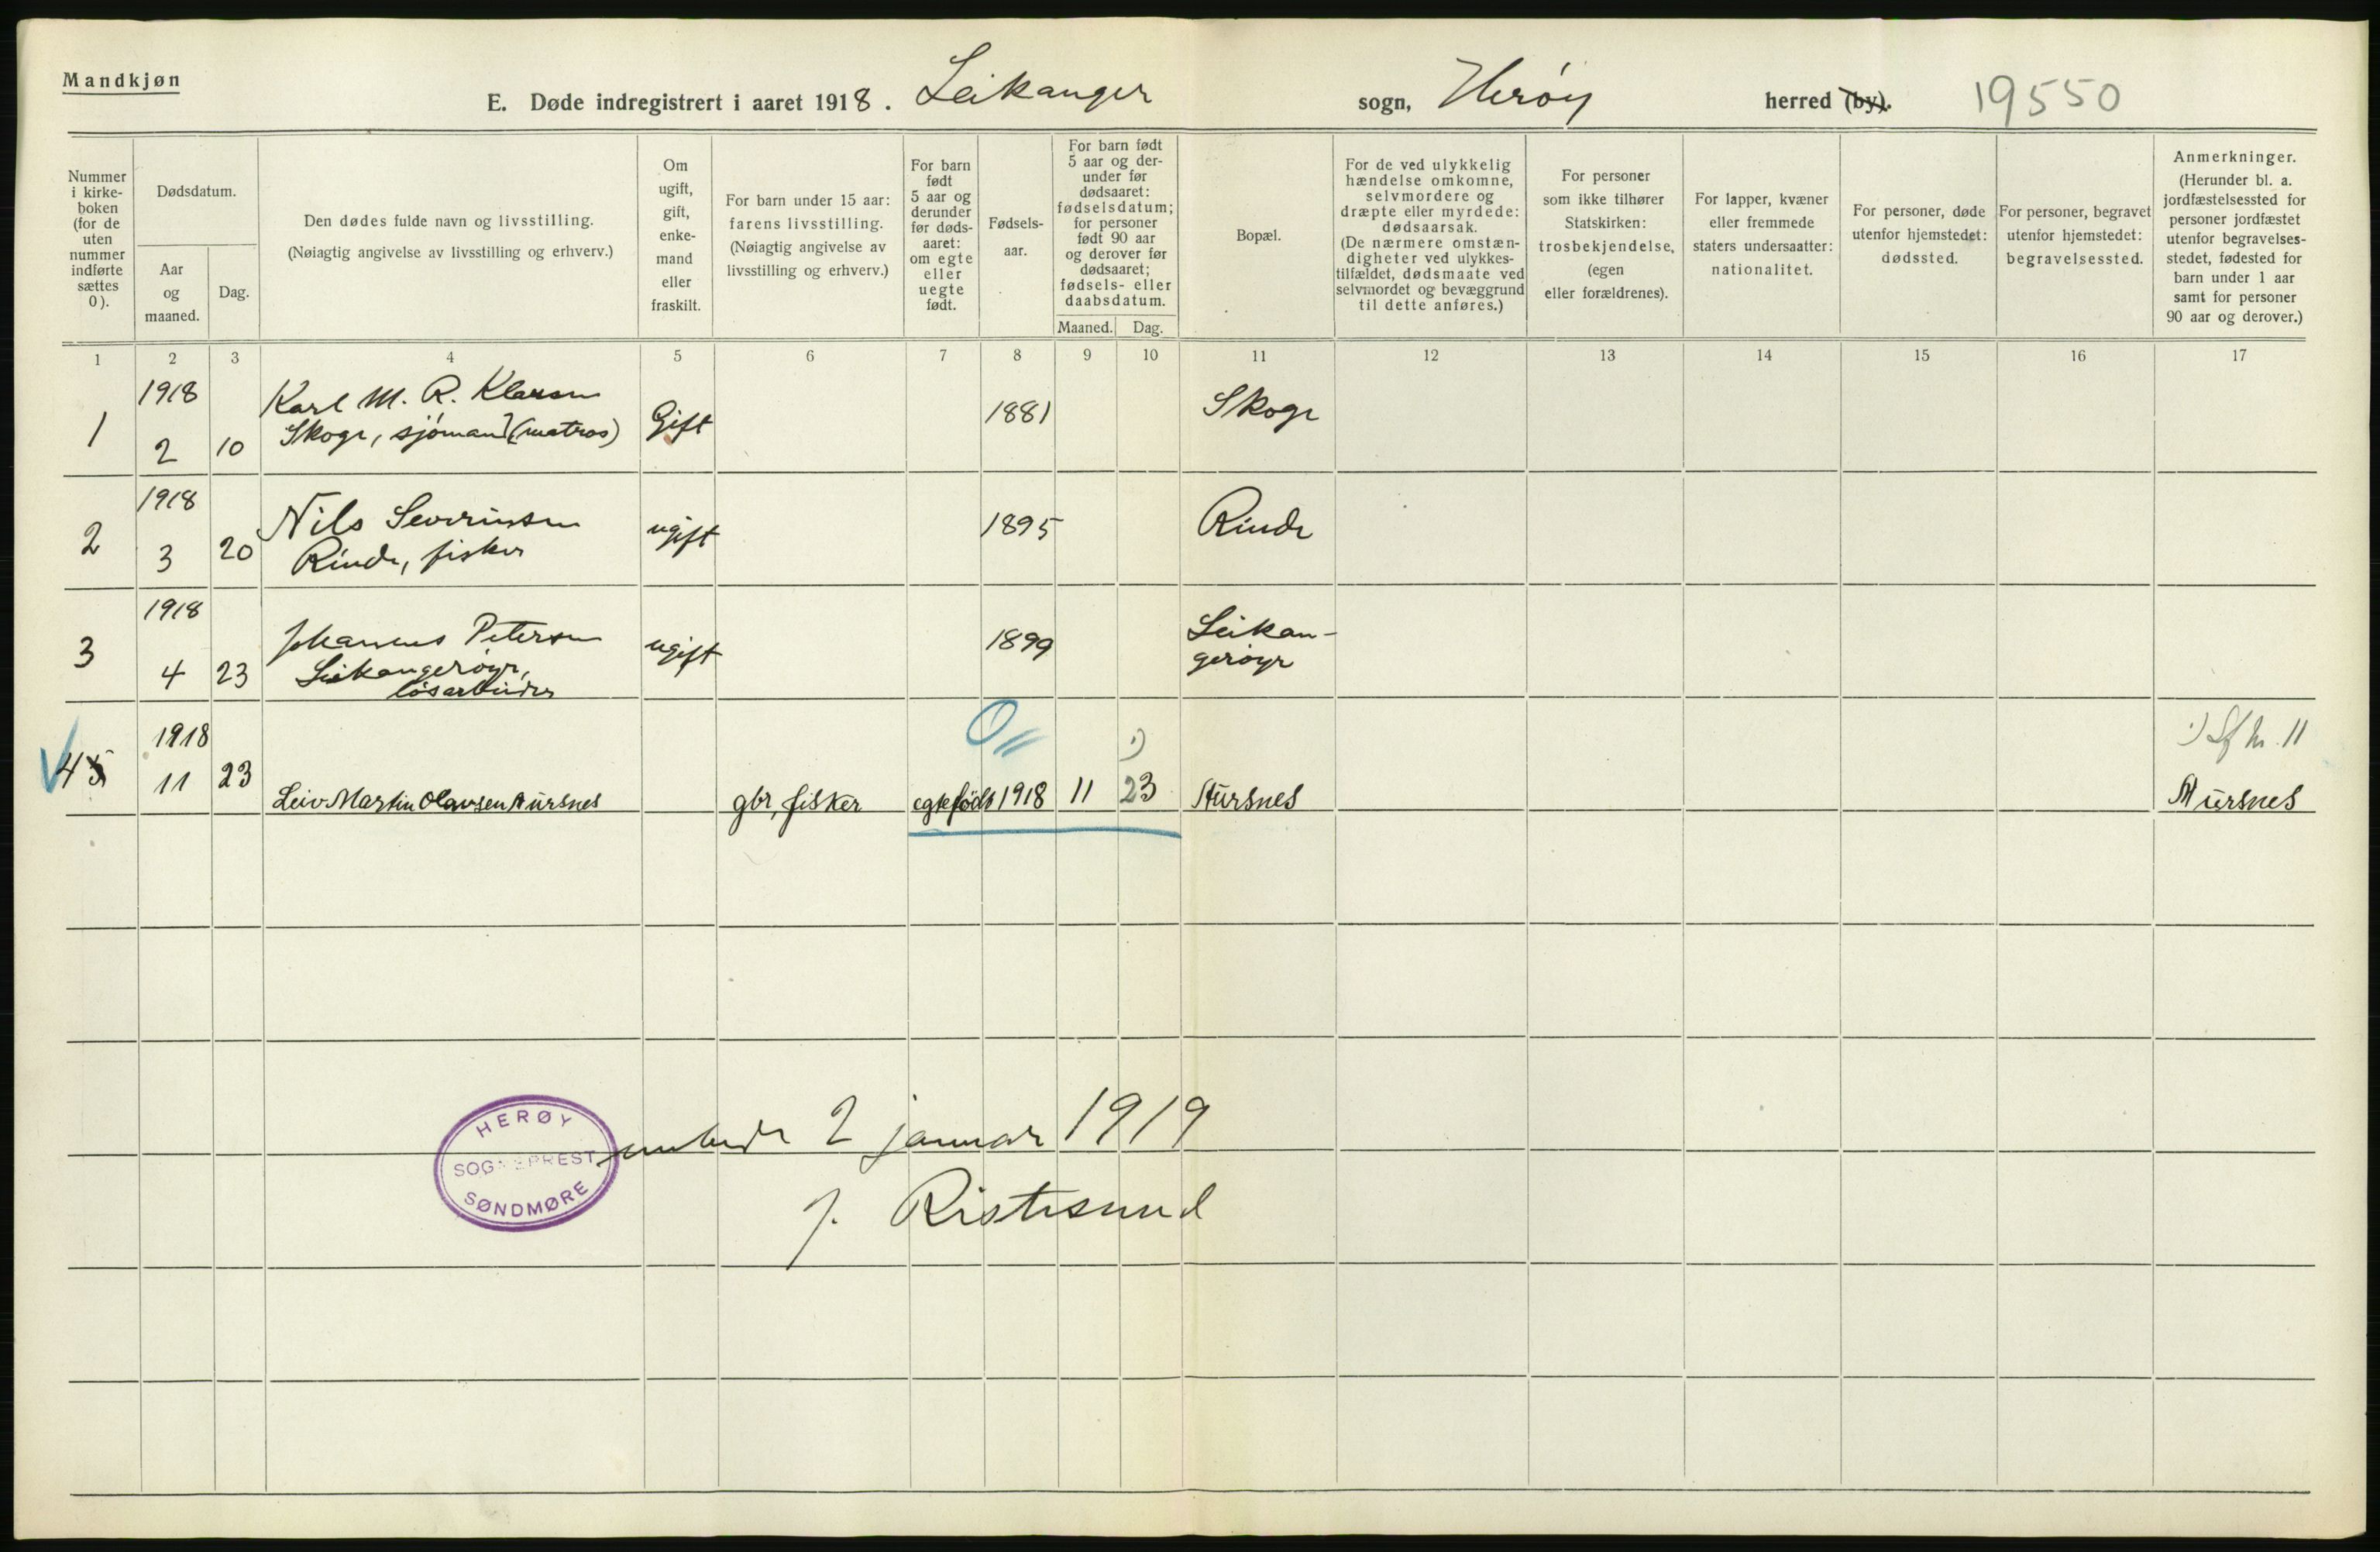 Mandkjøn
E. Døde indregistrert i aaret 1918. Leikanger sogn, Herøy herred (by). 19550
Nummer i kirke-boken (for de uten nummer indførte sættes 0).
Dødsdatum.
Aar og maaned.
Dag.
Den dødes fulde navn og livsstilling.
(Nøiagtig angivelse av livsstilling og erhverv.)
Om ugift, gift, enke-mand eller fraskilt.
For barn under 15 aar: farens livsstilling.
(Nøiagtig angivelse av livsstilling og erhverv.)
For barn født 5 aar og derunder før døds-aaret: om egte eller uegte født.
Fødsels-aar.
For barn født 5 aar og der-under før dødsaaret: fødselsdatum; for personer født 90 aar og derover før dødsaaret; fødsels- eller daabsdatum.
Maaned. Dag.
Bopæl.
For de ved ulykkelig hændelse omkomne, selvmordere og dræpte eller myrdede: dødsaarsak.
(De nærmere omstæn-digheter ved ulykkes-tilfældet, dødsmaate ved selvmordet og bevæggrund til dette anføres.)
For personer som ikke tilhører Statskirken: trosbekjendelse, (egen eller forældrenes).
For lapper, kvæner eller fremmede staters undersaatter: nationalitet.
For personer, døde utenfor hjemstedet: dødssted.
For personer, begravet utenfor hjemstedet: begravelsessted.
Anmerkninger.
(Herunder bl. a. jordfæstelsessted for personer jordfæstet utenfor begravelses-stedet, fødested for barn under 1 aar samt for personer 90 aar og derover.)
1 2 3 4 5 6 7 8 9 10 11 12 13 14 15 16 17
1 1918 2 10 Karl M. R. Klausen
Skoge, sjömand (matros) Gift 1881 Skoge
2 1918 3 20 Nils Severinsen
Rinde, fisker ugift 1895 Rinde
3 1918 4 23 Johannes Petersen
Leikangerøyr,
løsarbeider ugift 1899 Leikan-
gerøyr
4 5 1918 11 23 Leiv Martin Olavsen Aursnes gbr, fisker egtefödt 1918 11 23 Aursnes Aursnes
0
1)
1) Lf nr. 11
HERØY
SOGNEPREST
SØNDMØRE
embede 2 januar 1919
J. Ristesund